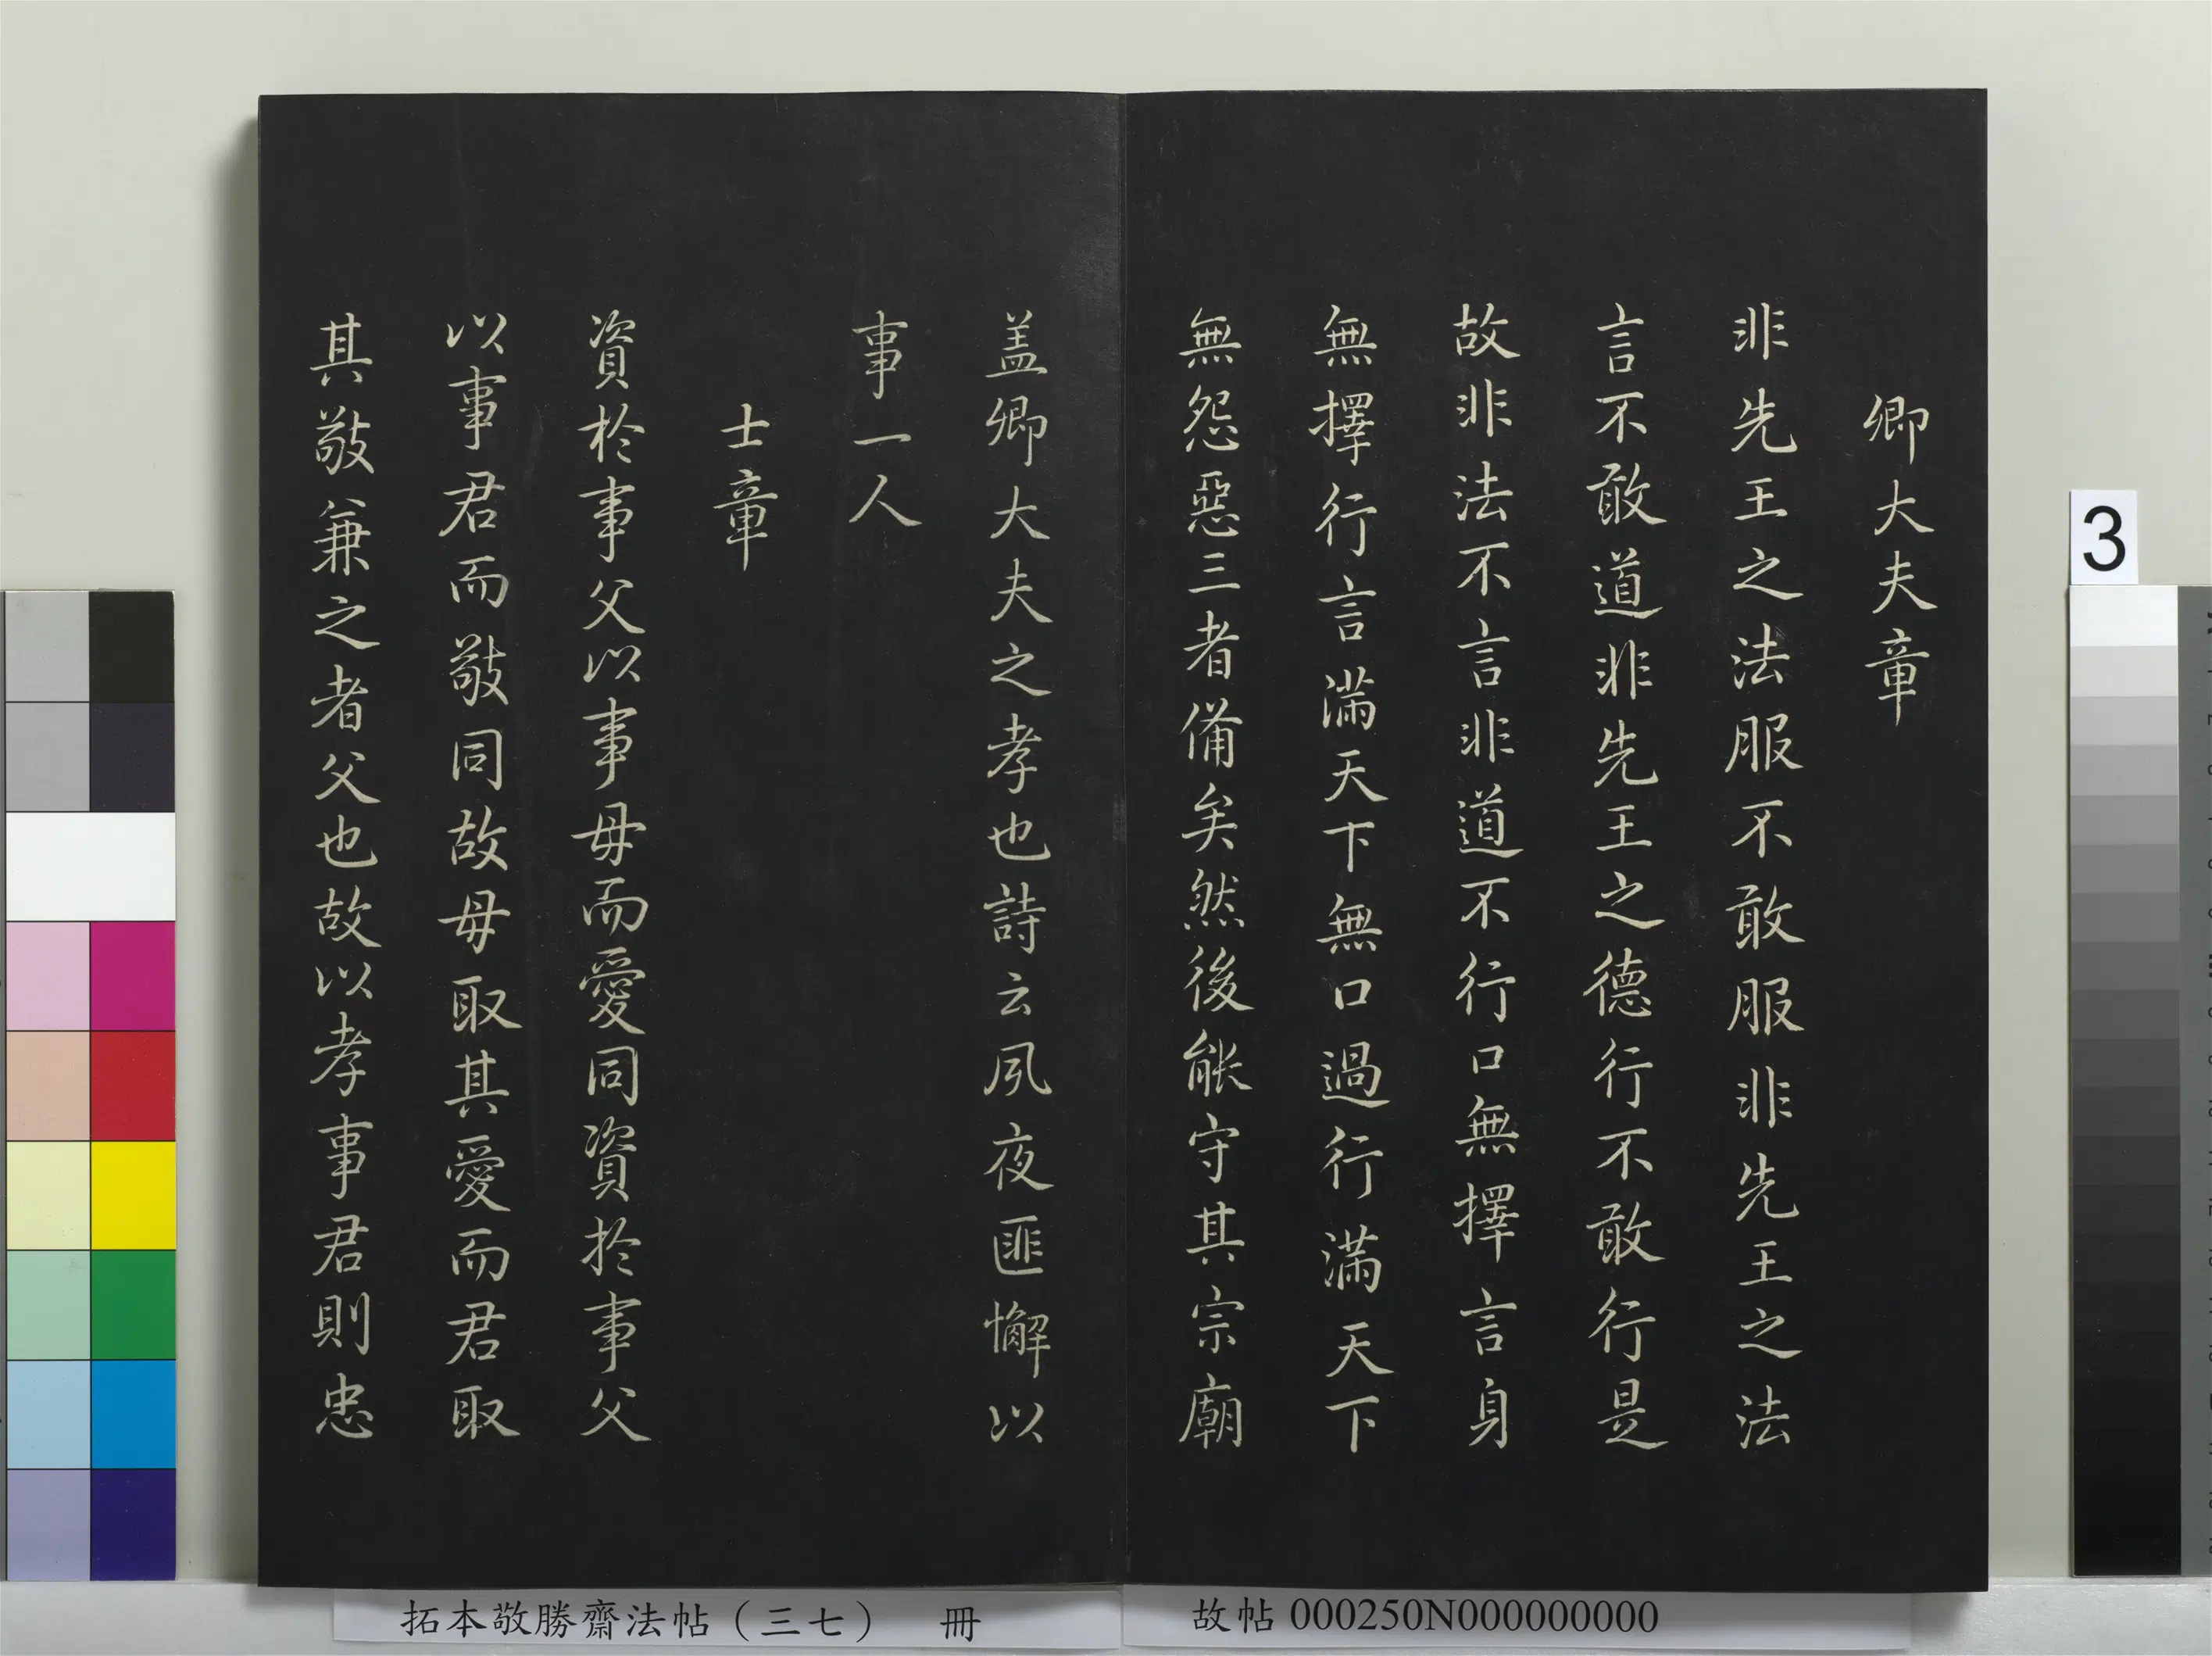 卿大夫章
非先王之法服不敢服非先王之法
言不敢道非先王之德行不敢行是
故非法不言非道不行口無擇言身
無擇行言滿天下無口過行滿天下
無怨惡三者備矣然後能守其宗廟
盖卿大夫之孝也詩云夙夜匪懈以
事一人
士章
資於事父以事母而愛同資於事父
以事君而敬同故母取其愛而君取
其敬兼之者父也故以孝事君則忠
3
故帖000250N000000000
拓本敬勝齋法帖（三七） 冊